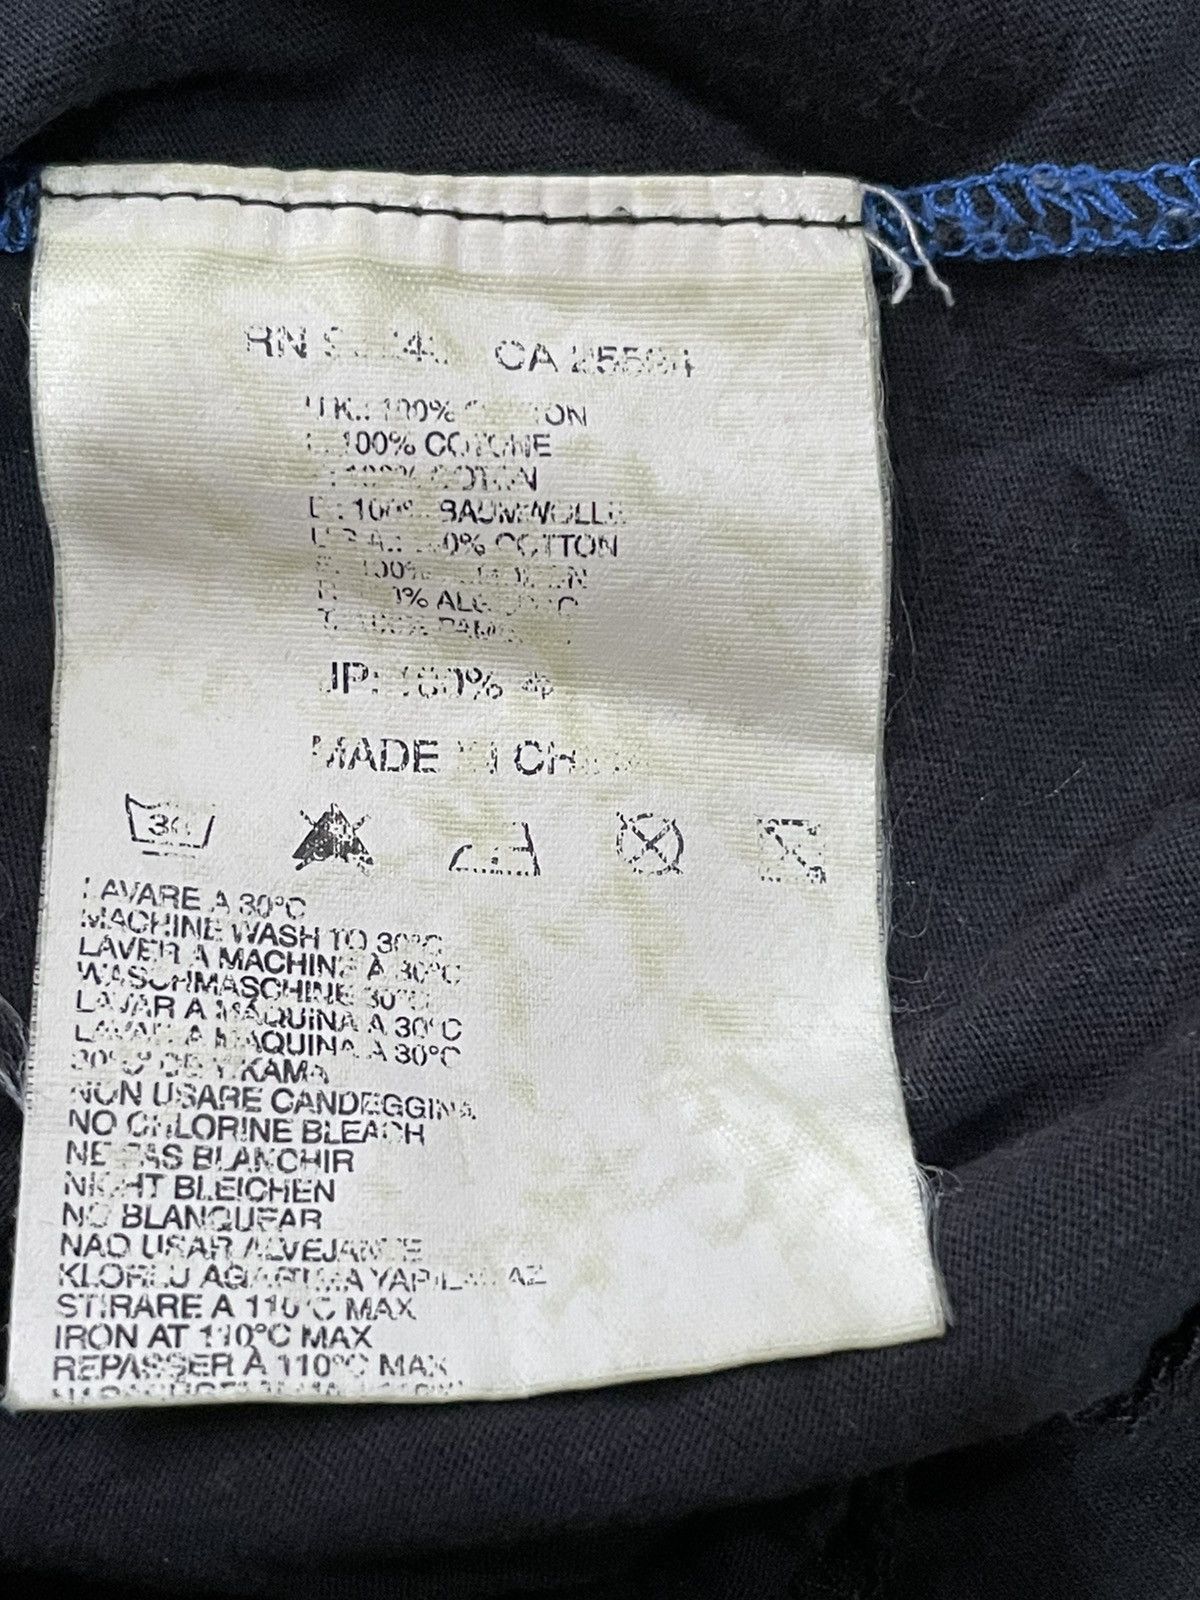 RN CA
UK.: 100% COTTON
100% COTONE
100% COTON
D.: 100% BAUMWOLLE
COTTON
100%
% ALGODÃO
JP: 100% 綿
MADE IN CHINA
30
LAVARE A 30°C
MACHINE WASH TO 30°C
LAVER A MACHINE À 30°C
WASCHMASCHINE 30°C
LAVAR A MAQUINA A 30°C
LAVAR A MAQUINA A 30°C
30°C DE YIKAMA
NON USARE CANDEGGINA
NO CHLORINE BLEACH
NE PAS BLANCHIR
NICHT BLEICHEN
NO BLANQUEAR
NAO USAR ALVEJANTE
KLORLU AGARTMA YAPILAMAZ
STIRARE A 110°C MAX
IRON AT 110°C MAX
REPASSER À 110°C MAX